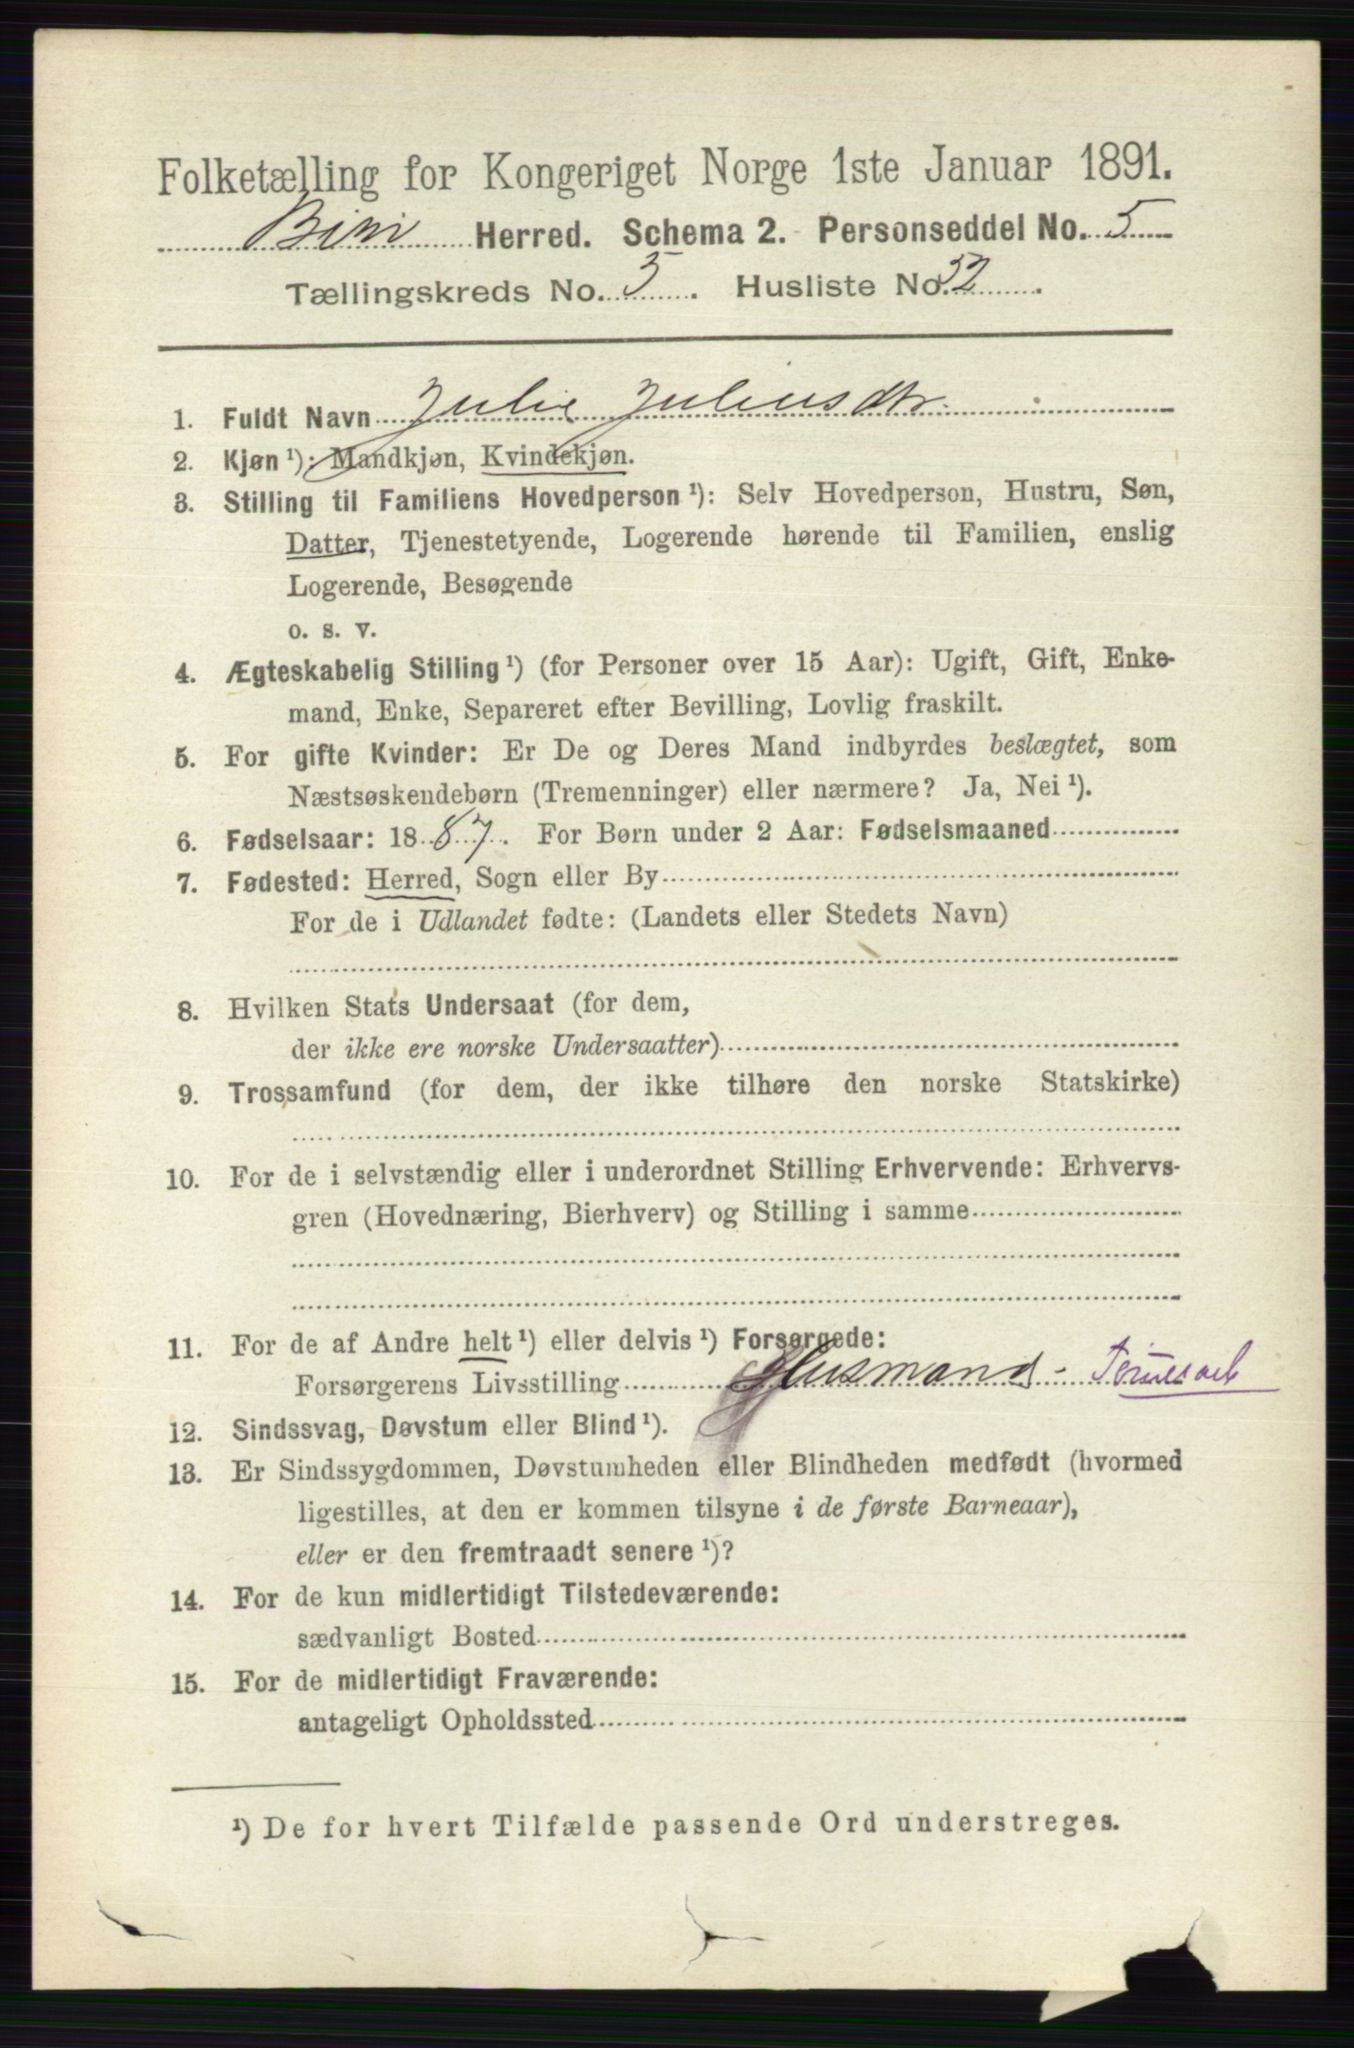 Folketælling for Kongeriget Norge 1ste Januar 1891.
Biri Herred. Schema 2. Personseddel No. 5
Tællingskreds No. 5. Husliste No. 32.
1. Fuldt Navn Julie Juliusdtr.
2. Kjøn ¹): Mandkjøn, Kvindekjøn.
3. Stilling til Familiens Hovedperson ¹): Selv Hovedperson, Hustru, Søn,
Datter, Tjenestetyende, Logerende hørende til Familien, enslig
Logerende, Besøgende
o. s. v.
4. Ægteskabelig Stilling ¹) (for Personer over 15 Aar): Ugift, Gift, Enke-
mand, Enke, Separeret efter Bevilling, Lovlig fraskilt.
5. For gifte Kvinder: Er De og Deres Mand indbyrdes beslægtet, som
Næstsøskendebørn (Tremenninger) eller nærmere? Ja, Nei ¹).
6. Fødselsaar: 1887. For Børn under 2 Aar: Fødselsmaaned
7. Fødested: Herred, Sogn eller By
For de i Udlandet fødte: (Landets eller Stedets Navn)
8. Hvilken Stats Undersaat (for dem,
der ikke ere norske Undersaatter)
9. Trossamfund (for dem, der ikke tilhøre den norske Statskirke)
10. For de i selvstændig eller i underordnet Stilling Erhvervende: Erhvervs-
gren (Hovednæring, Bierhverv) og Stilling i samme
11. For de af Andre helt ¹) eller delvis ¹) Forsørgede:
Forsørgerens Livsstilling Husmand -
12. Sindssvag, Døvstum eller Blind ¹).
13. Er Sindssygdommen, Døvstumheden eller Blindheden medfødt (hvormed
ligestilles, at den er kommen tilsyne i de første Barneaar),
eller er den fremtraadt senere ¹)?
14. For de kun midlertidigt Tilstedeværende:
sædvanligt Bosted
15. For de midlertidigt Fraværende:
antageligt Opholdssted
¹) De for hvert Tilfælde passende Ord understreges.